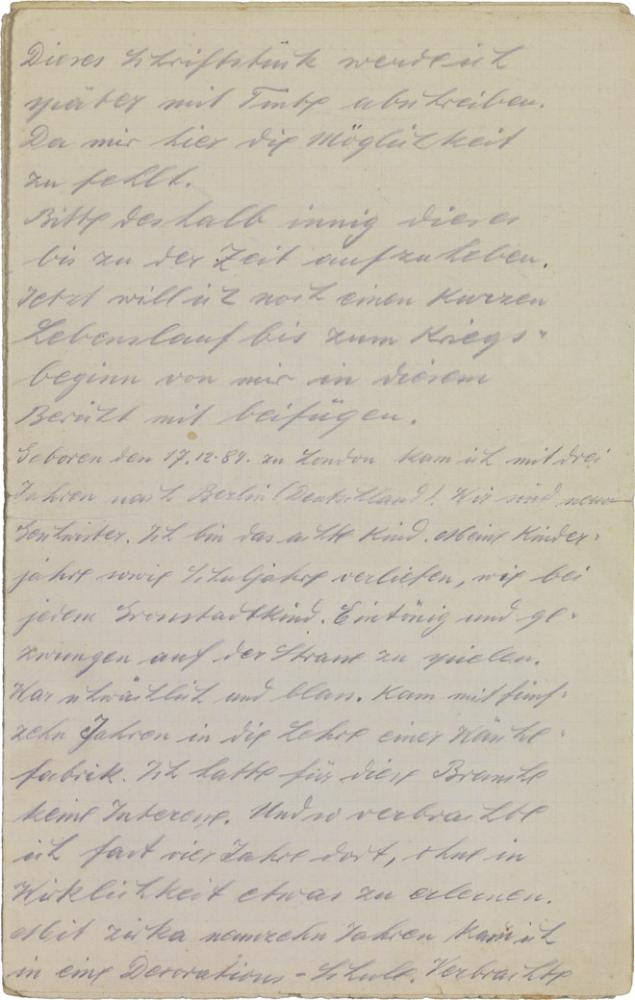 Dieses Schriftstück werde ich
später mit Tinte abschreiben.
Da mir hier die Möglichkeit
zu fehlt.
Bitte deshalb innig dieses
bis zu der Zeit aufzuheben.
Jetzt will ich noch einen kurzen
Lebenslauf bis zum Kriegs-
beginn von mir in diesem
Bericht mit beifügen.
Geboren den 17.12.84. zu London kam ich mit drei
Jahren nach Berlin (Deutschland). Wir sind neun
Geschwister. Ich bin das achte Kind. Meine Kinder-
jahre sowie Schuljahre verliefen, wie bei
jedem Grossstadtkind. Eintönig und ge-
zwungen auf der Strasse zu spielen.
War schwächlich und blass. Kam mit fünf-
zehn Jahren in die Lehre einer Wäsche-
fabrik. Ich hatte für diese Branche
keine Interesse. Und so verbrachte
ich fast vier Jahre dort, ohne in
Wirklichkeit etwas zu erlernen.
Mit zirka neunzehn Jahren kam ich
in eine Decorations-Schule. Verbrachte